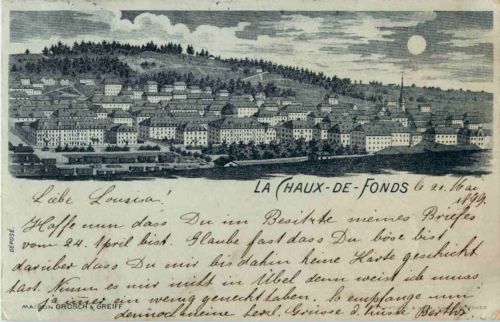 LA CHAUX-DE-FONDS le 21. Mai
1899.
Liebe Lousisa!
Hoffe nun dass Du im Besitzte meines Briefes
vom 24. April bist. Glaube fast dass Du böse bist
darüber dass Du mir bis dahin keine Karte geschickt
hast. Nimm es mir nicht in Übel denn weist ich muss
ja immer ein wenig geneckt haben. So empfange nun
dennoch eine herzl. Grüsse & Küsse Bertha
DEPOSÉ.
MAISON GROSCH & GREIFF